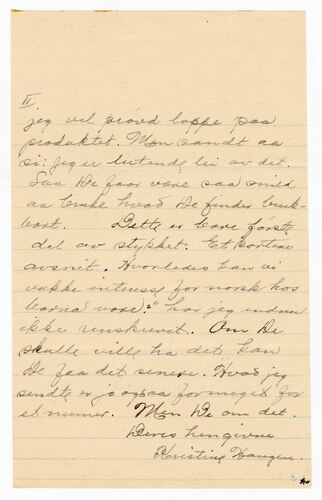 II.
jeg vel prövd loppe paa
produktet. Men sandt aa
si: jeg er lutende lei av det.
Saa De faar være saa snild
aa bruke hvad De finder bruk-
bart. Dette er bare förste
del av stykket. Et kortere
avsnit. Hvorledes kan vi
vække interesse for norsk hos
barna vore?" har jeg endnu
ikke renskrevet. Om De
skulle ville ha det kan
De faa det senere. Hvad jeg
sendte er jo ogsaa for meget for
et numer. Men De om det.
Deres hengivne
Kristine Haugen.